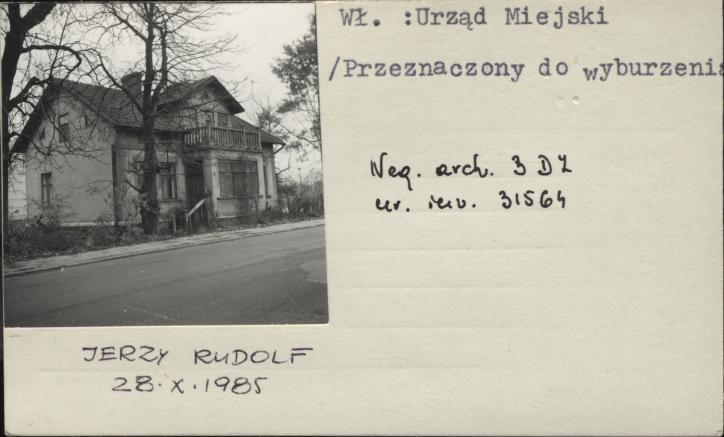 Wł. :Urząd Miejski
/Przeznaczony do wyburzenia
Neg. arch. 3 DZ
nr. inw. 31564
JERZY RUDOLF
28.X.1985